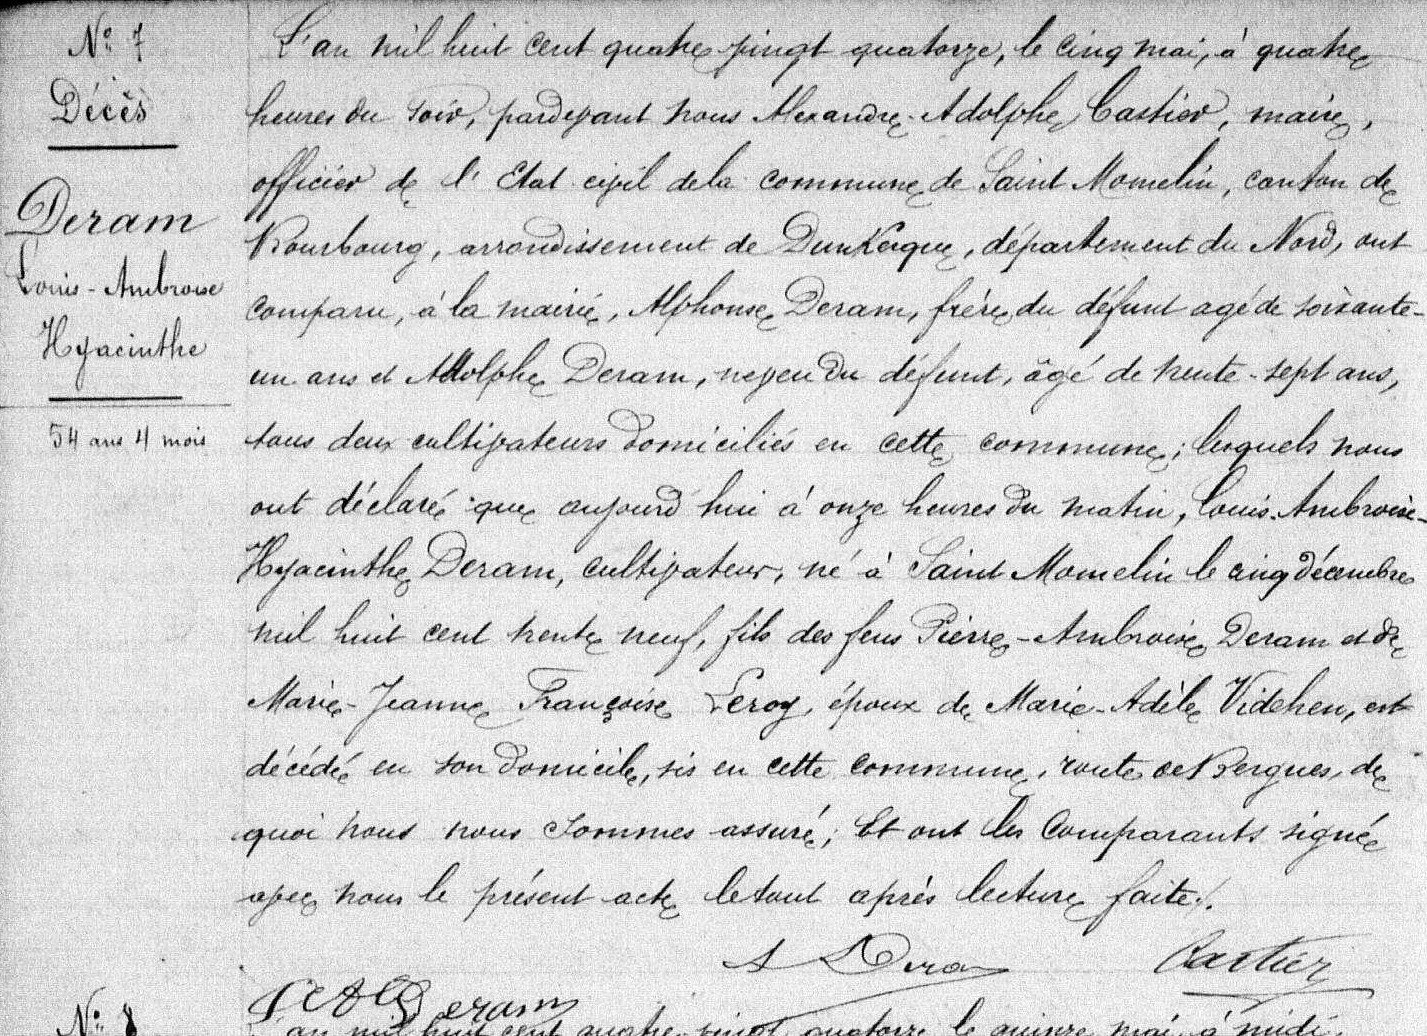 N° 7
Décès
Deram
Louis-Ambroise
Hyacinthe
54 ans 4 mois
L'an mil huit cent quatre vingt quatorze, le cinq mai, à quatre
heures du soir, pardevant nous Alexandre-Adolphe Castier, maire,
officier de l'Etat civil de la commune de Saint Momelin, canton de
Bourbourg, arrondissement de Dunkerque, département du Nord, ont
comparu, à la mairie, Alphonse Deram, frère du défunt agé de soixante-
un ans et Adolphe Deram, neveu du défunt, âgé de trente-sept ans,
tous deux cultivateurs domiciliés en cette commune; lesquels nous
ont déclaré que aujourd'hui à onze heures du matin, Louis-Ambroise-
Hyacinthe Deram, cultivateur, né à Saint Momelin le cinq décembre
mil huit cent trente neuf, fils des feus Pierre-Ambroise Deram et de
Marie-Jeanne Françoise Leroy, époux de Marie-Adèle Videhen, est
décédé en son domicile, sis en cette commune, route de Bergues, de
quoi nous nous sommes assuré; Et ont les comparants signé
avec nous le présent acte le tout après lecture faite./.
A Deram
Castier
Deram
N° 8
L'an mil huit cent quatre-vingt quatorze le quinze mai, à midi